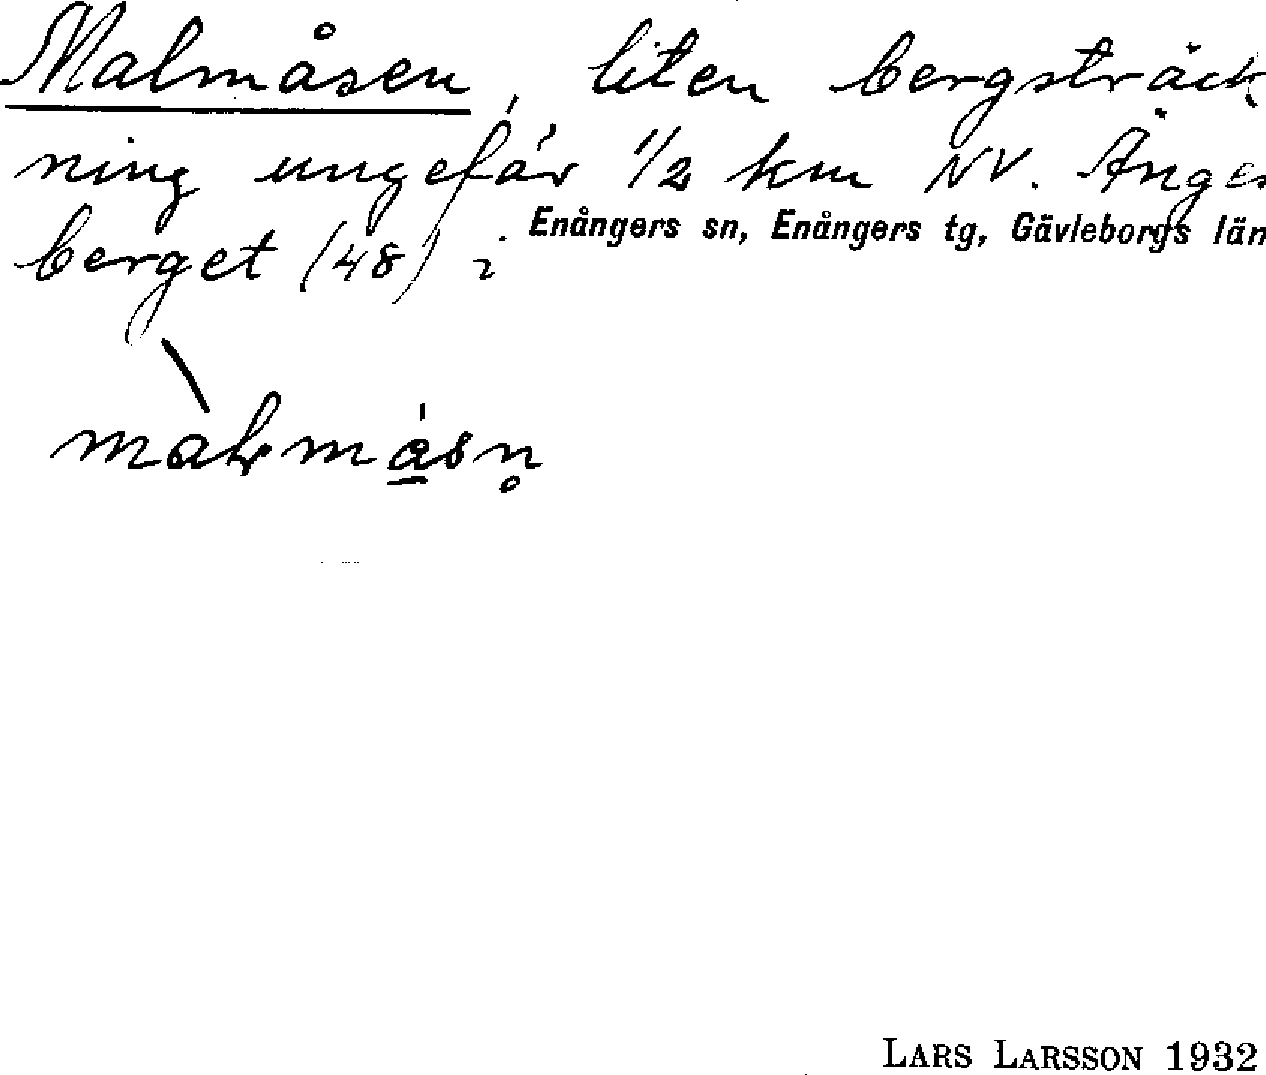 Malmåsen, liten bergsträck
ning ungefär 1/2 km NV. Änges
berget (48) i
Enångers sn, Enångers tg, Gävleborgs län
LARS LARSSON 1932